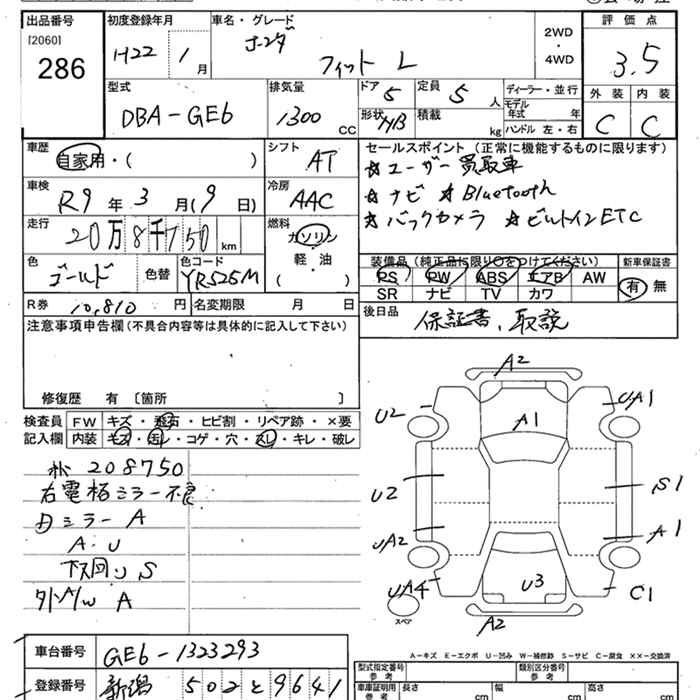 出品番号 初度登録年月 車名・グレード 評価点
[2060] ホンダ 2WD
286 H22 1月 フィット L ・ 4WD 3.5
型式 排気量 ドア 定員 ディーラー・並行 外装 内装
DBA-GE6 1300 CC 5 5 人 モデル年式 年 C C
形状 H/B 積載 kg ハンドル 左・右
車歴 シフト セールスポイント (正常に機能するものに限ります)
自家用・( ) AT ☆ユーザー買取車
車検 冷房 ☆ナビ ☆Bluetooth
R9年 3月(9日) AAC ☆バックカメラ ☆ビルトインETC
走行 燃料
20万8千750 km ガソリン
軽・油
( )
色 色コード 装備品 (純正品に限り○をつけてください) 新車保証書
ゴールド 色替 YR525M PS PW ABS エアB AW 有 無
SR ナビ TV カワ
R券 10,810 円 名変期限 月 日 後日品 保証書、取説
注意事項申告欄(不具合内容等は具体的に記入して下さい)
修復歴 有 〔箇所 〕
検査員 FW キズ・飛石・ヒビ割・リペア跡・×要
記入欄 内装 キズ・汚レ・コゲ・穴・スレ・キレ・破レ
208750
右電格ミラー不良
内ミラー A
A・U
下回り S
外A/W A
A2
U2 A1 UA1
U2 S1
UA2 A1
UA4 U3 C1
スペア
A2
A-キズ E-エクボ U-凹み W-補修跡 S-サビ C-腐食 XX-交換済
車台番号 GE6-1323293
型式指定番号 参考 類別区分番号 参考
登録番号 新潟 502 と 9641
車庫証明用 参考 長さ cm 幅 cm 高さ cm